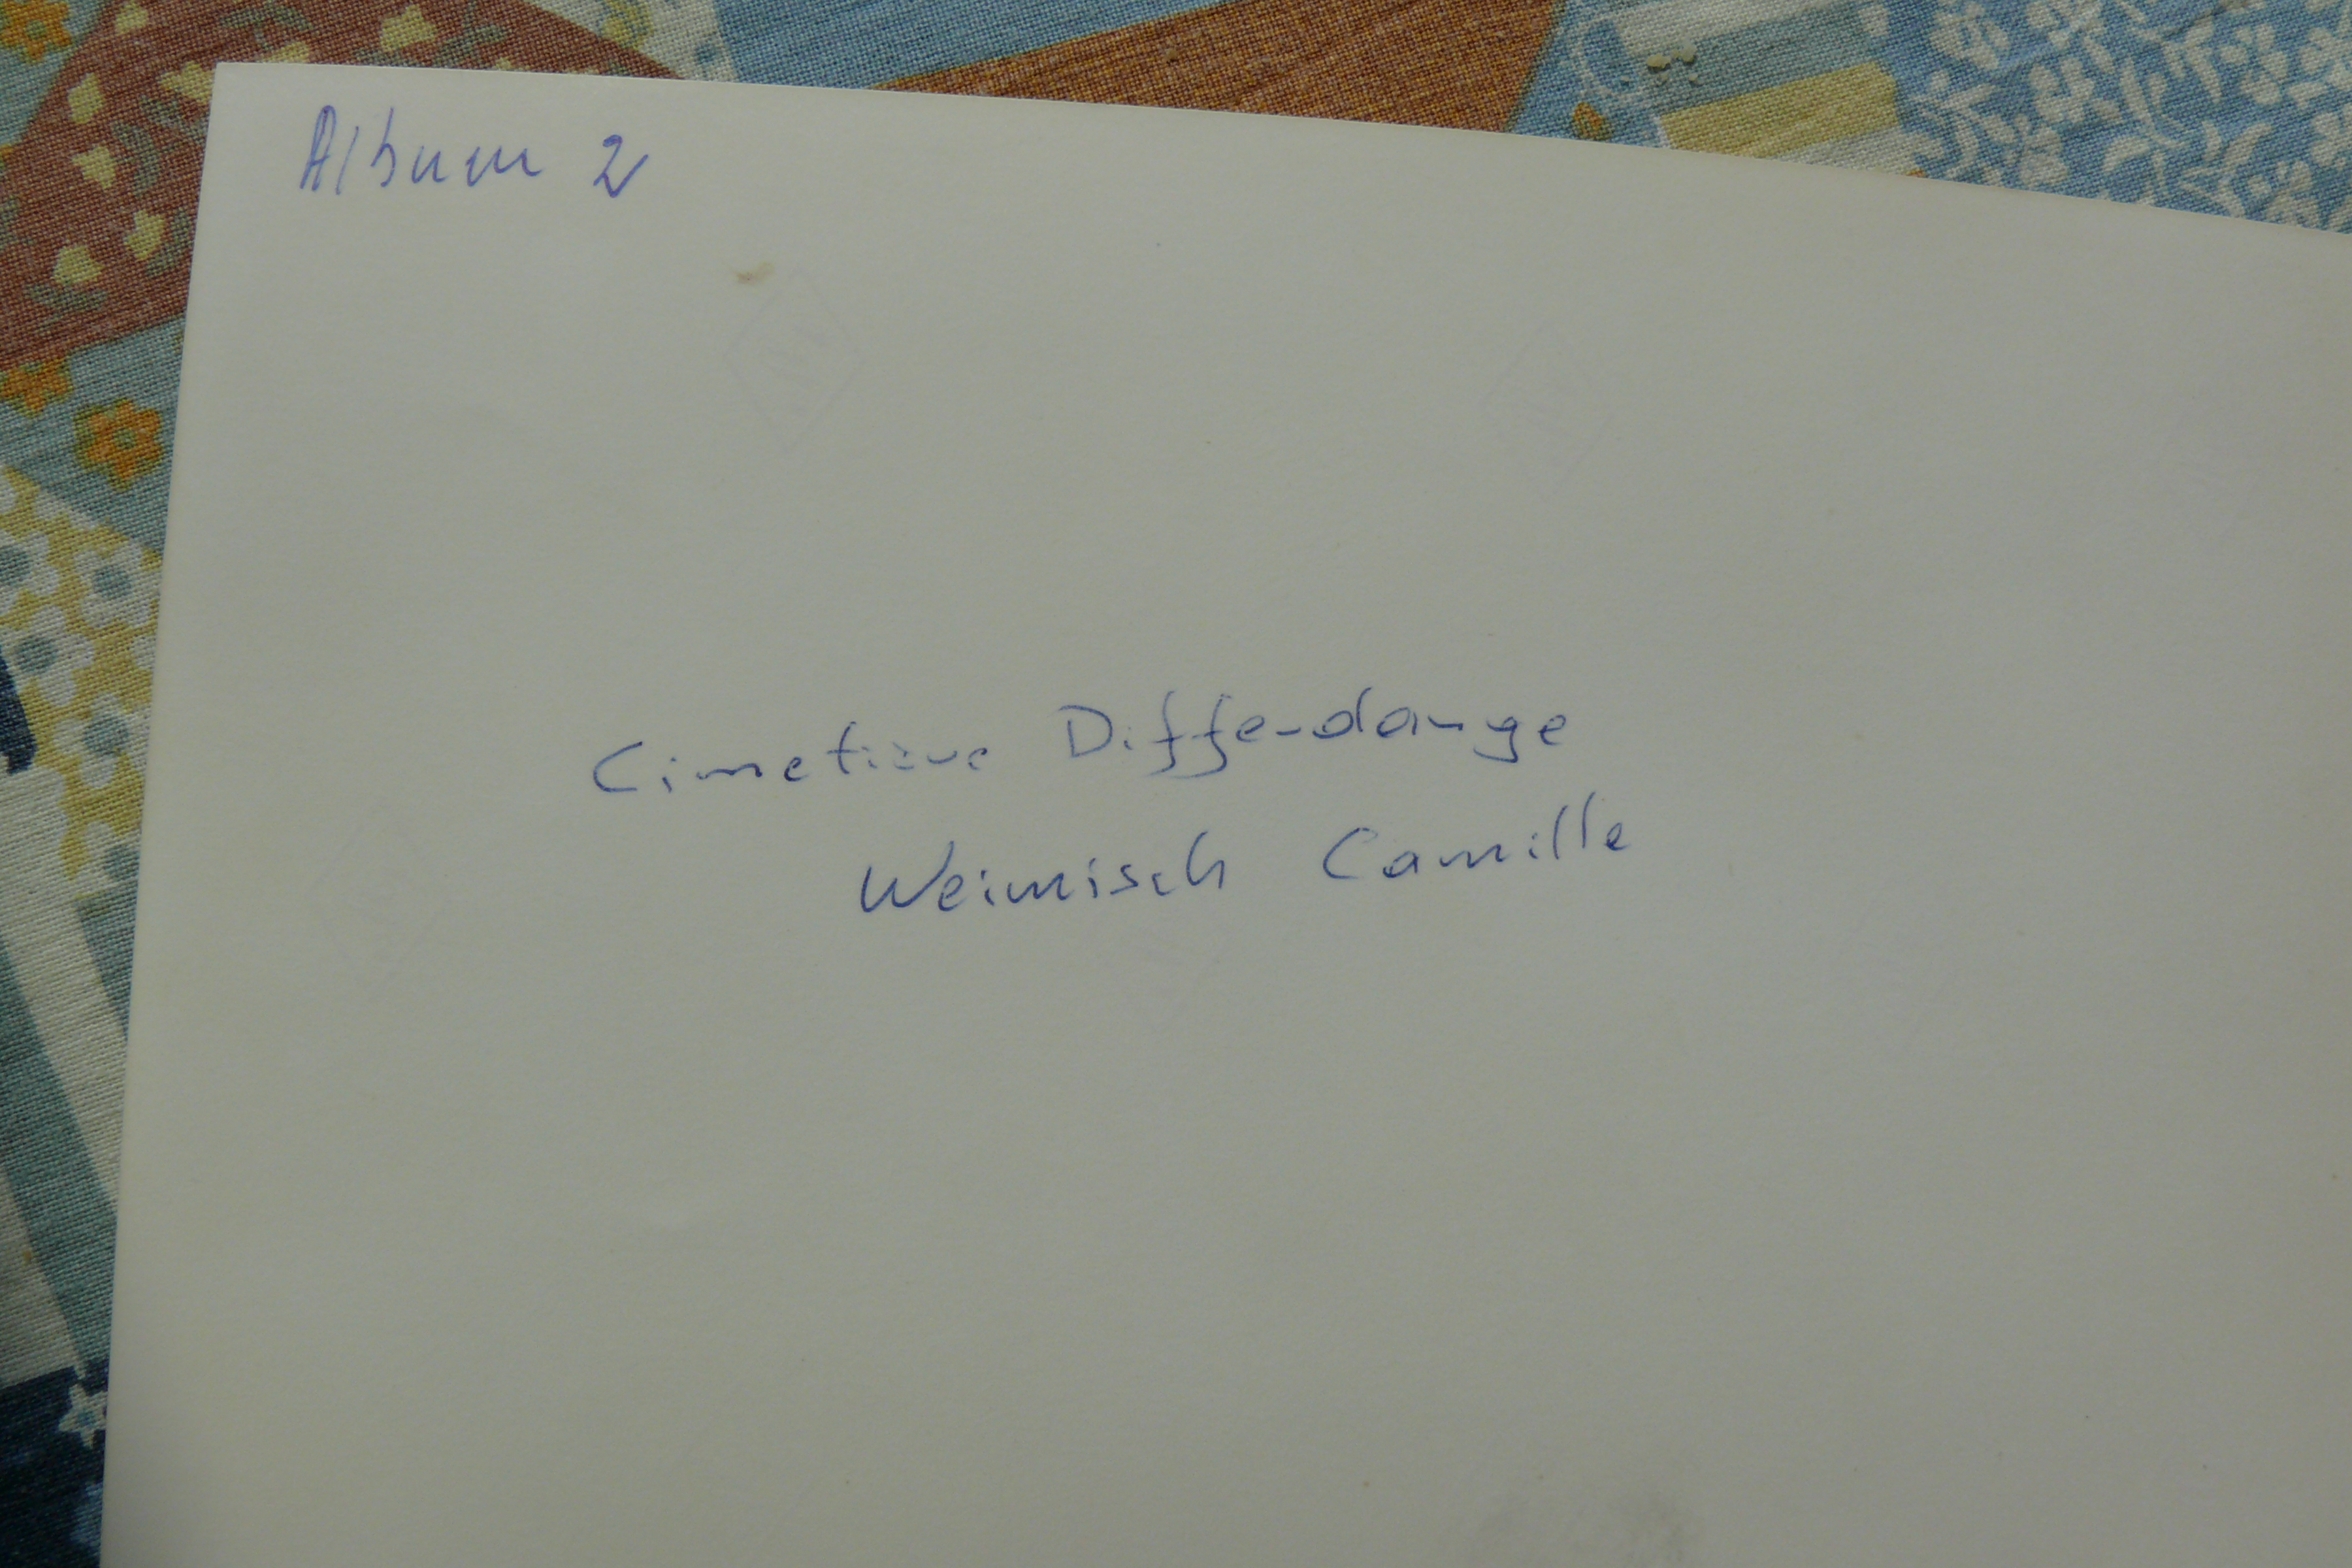 Album 2
Cimetière Differdange
Weimisch Camille